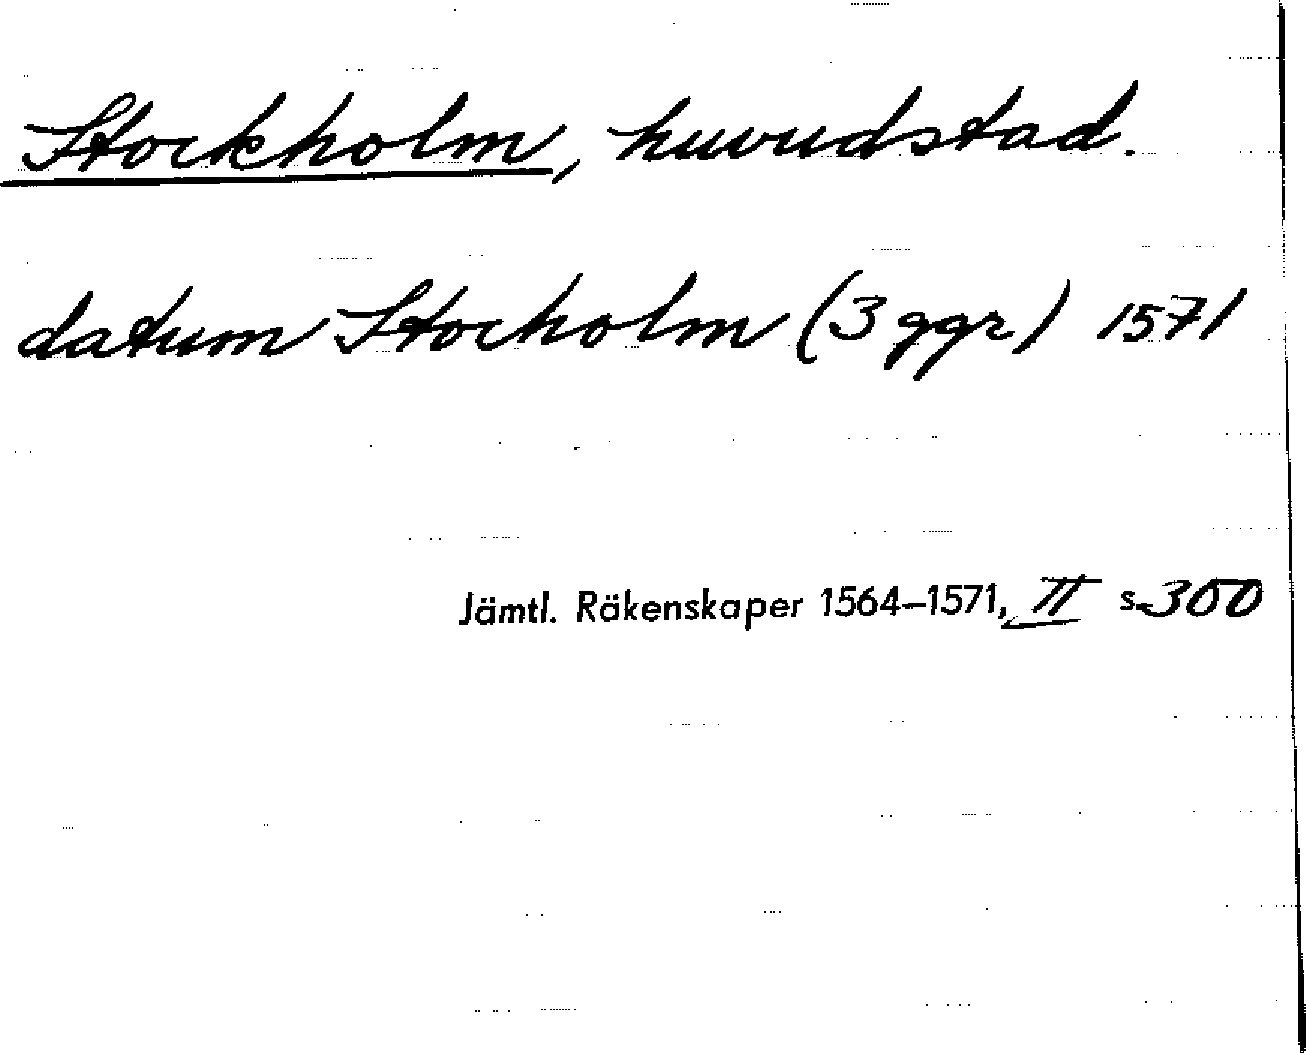 Stockholm, huvudstad.
datum Stocholm (3 ggr) 1571
Jämtl. Räkenskaper 1564–1571, II s. 300